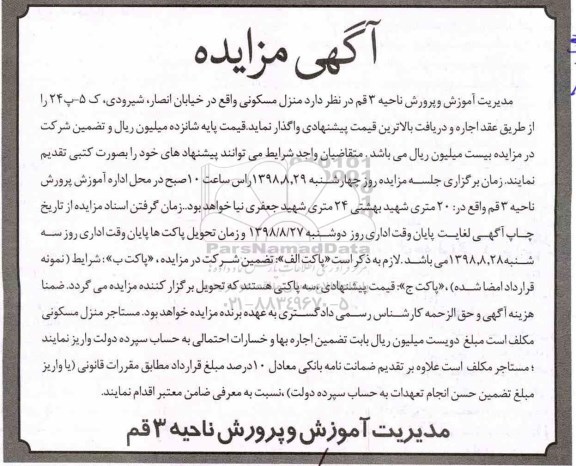 آگهی مزایده
مدیریت آموزش وپرورش ناحیه ۳ قم در نظر دارد منزل مسکونی واقع در خیابان انصار، شیرودی، ک ۵-پ۲۴ را
از طریق عقد اجاره و دریافت بالاترین قیمت پیشنهادی واگذار نماید.قیمت پایه شانزده میلیون ریال و تضمین شرکت
در مزایده بیست میلیون ریال می باشد . متقاضیان واجد شرایط می توانند پیشنهاد های خود را بصورت کتبی تقدیم
نمایند. زمان برگزاری جلسه مزایده روز چهارشنبه ۱۳۹۸،۸،۲۹راس ساعت ۱۰صبح در محل اداره آموزش پرورش
ناحیه ۳ قم واقع در: ۲۰ متری شهید بهشتی ۲۴ متری شهید جعفری نیا خواهد بود..زمان گرفتن اسناد مزایده از تاریخ
چاپ آگهی لغایت پایان وقت اداری روز دوشنبه ۱۳۹۸/۸/۲۷ و زمان تحویل پاکت ها پایان وقت اداری روز سه
شنبه۱۳۹۸،۸،۲۸می باشد. لازم به ذکر است «پاکت الف»: تضمین شرکت در مزایده ، «پاکت ب»: شرایط (نمونه
قرارداد امضا شده) ، «پاکت ج»: قیمت پیشنهادی، سه پاکتی هستند که تحویل برگزار کننده مزایده می گردد. ضمنا
هزینه آگهی و حق الزحمه کارشناس رسمی دادگستری به عهده برنده مزایده خواهد بود. مستاجر منزل مسکونی
مکلف است مبلغ دویست میلیون ریال بابت تضمین اجاره بها و خسارات احتمالی به حساب سپرده دولت واریز نمایند
؛ مستاجر مکلف است علاوه بر تقدیم ضمانت نامه بانکی معادل ۱۰درصد مبلغ قرارداد مطابق مقررات قانونی (یا واریز
مبلغ تضمین حسن انجام تعهدات به حساب سپرده دولت) ،نسبت به معرفی ضامن معتبر اقدام نمایند.
مدیریت آموزش وپرورش ناحیه ۳ قم
ParsNamadData
۰۲۱-۸۸۳۴۹۶۷۰-۵